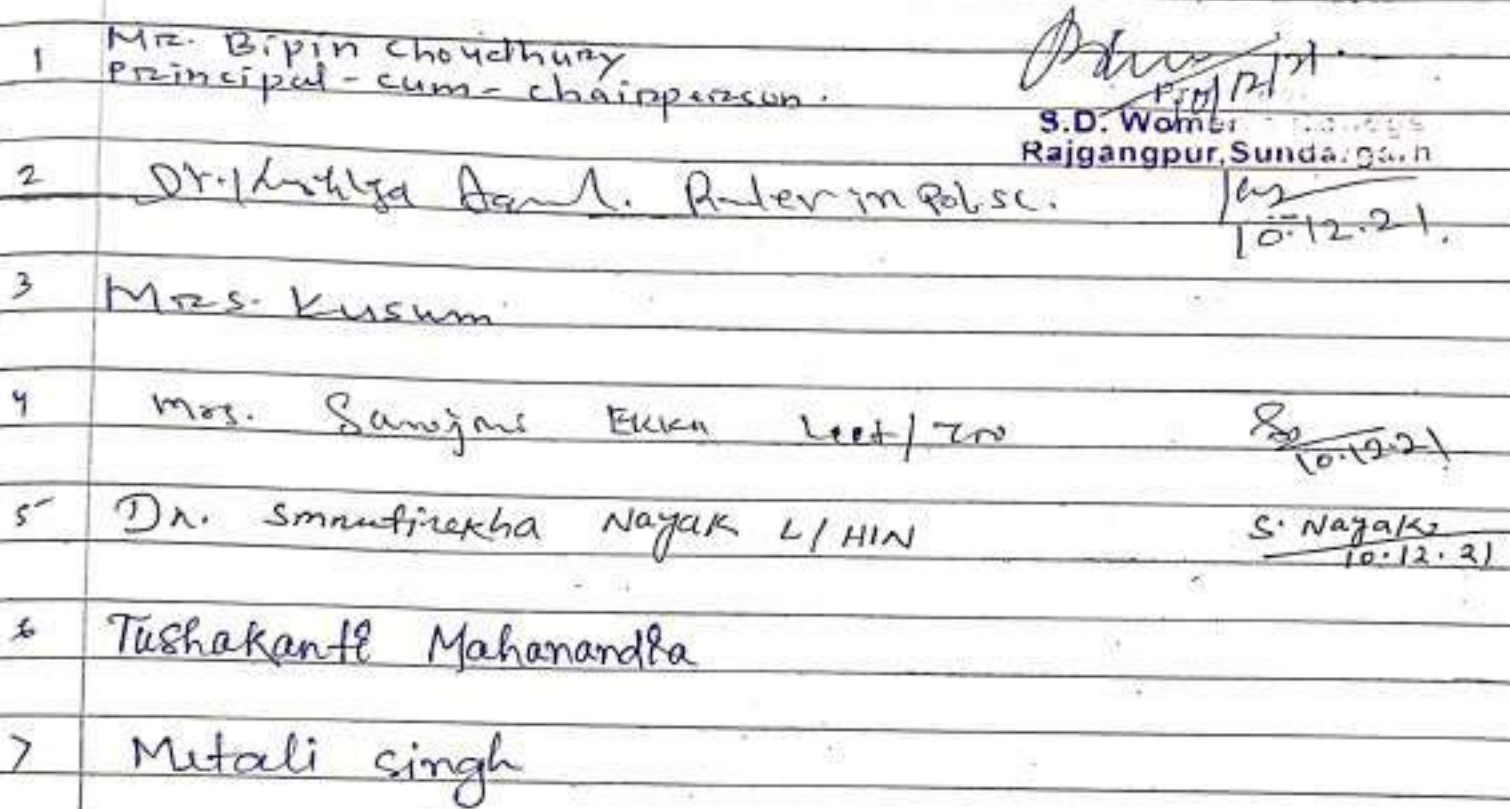 1 Mr. Bipin Choudhury
Principal-cum-chairperson.
S.D. Women's
Rajgangpur, Sundargarh
2 Dr. in Pol.sc.
10.12.21.
3 Mrs. Kusum
4 Mrs. Ekka Lect/
10.12.21
5 Dr. Smrutirekha Nayak L/HIN S. Nayak
10.12.21
6 Tushakanti Mahanandia
7 Mitali singh